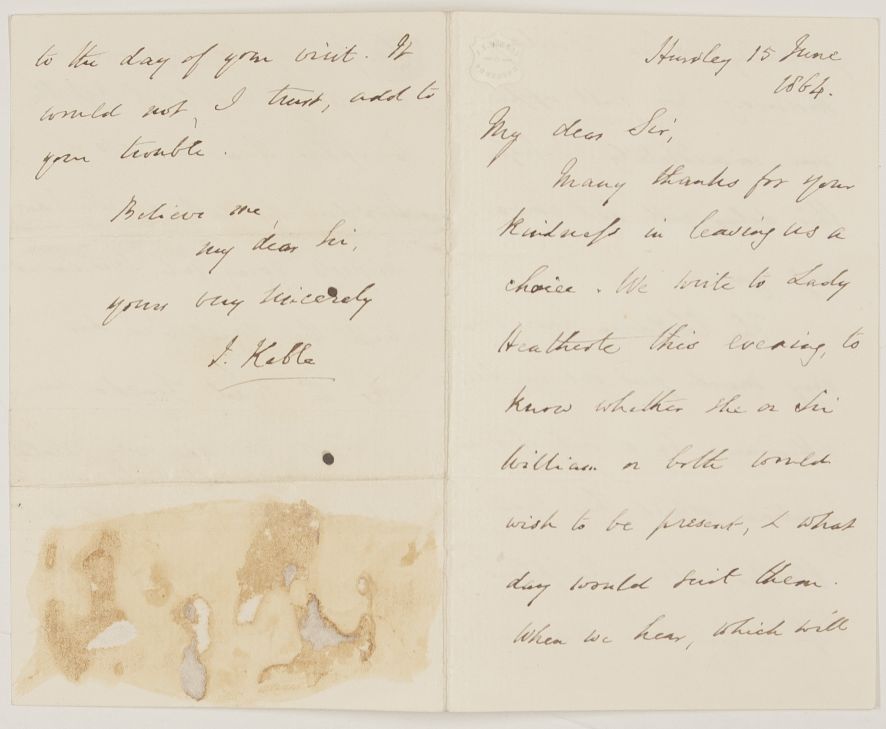 Hursley 15 June
1864.
My dear Sir,
Many thanks for your
kindness in leaving us a
choice. We write to Lady
Heathcote this evening, to
know whether she or Sir
William or both would
wish to be present, & what
day would suit them.
When we hear, which will
to the day of your visit. It
would not, I trust, add to
your trouble.
Believe me,
my dear Sir,
yours very sincerely
J. Keble